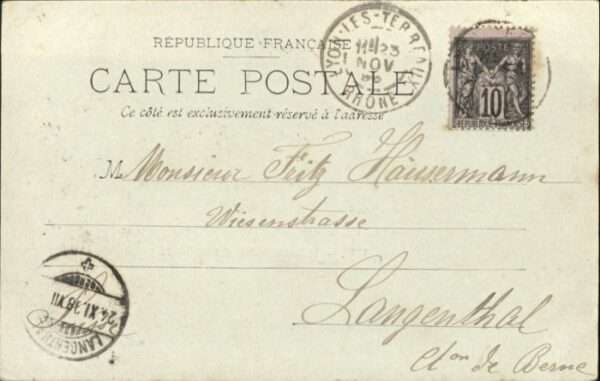 RÉPUBLIQUE FRANÇAISE
CARTE POSTALE
Ce côté est exclusivement réservé à l'adresse
LYON-LES-TERREAUX
11E 23
NOV
RHÔNE
POSTE
10
REPUBLIQUE
M Monsieur Fritz Häusermann
Wiesenstrasse
Langenthal
Cton de Berne
24.XI.98.XII